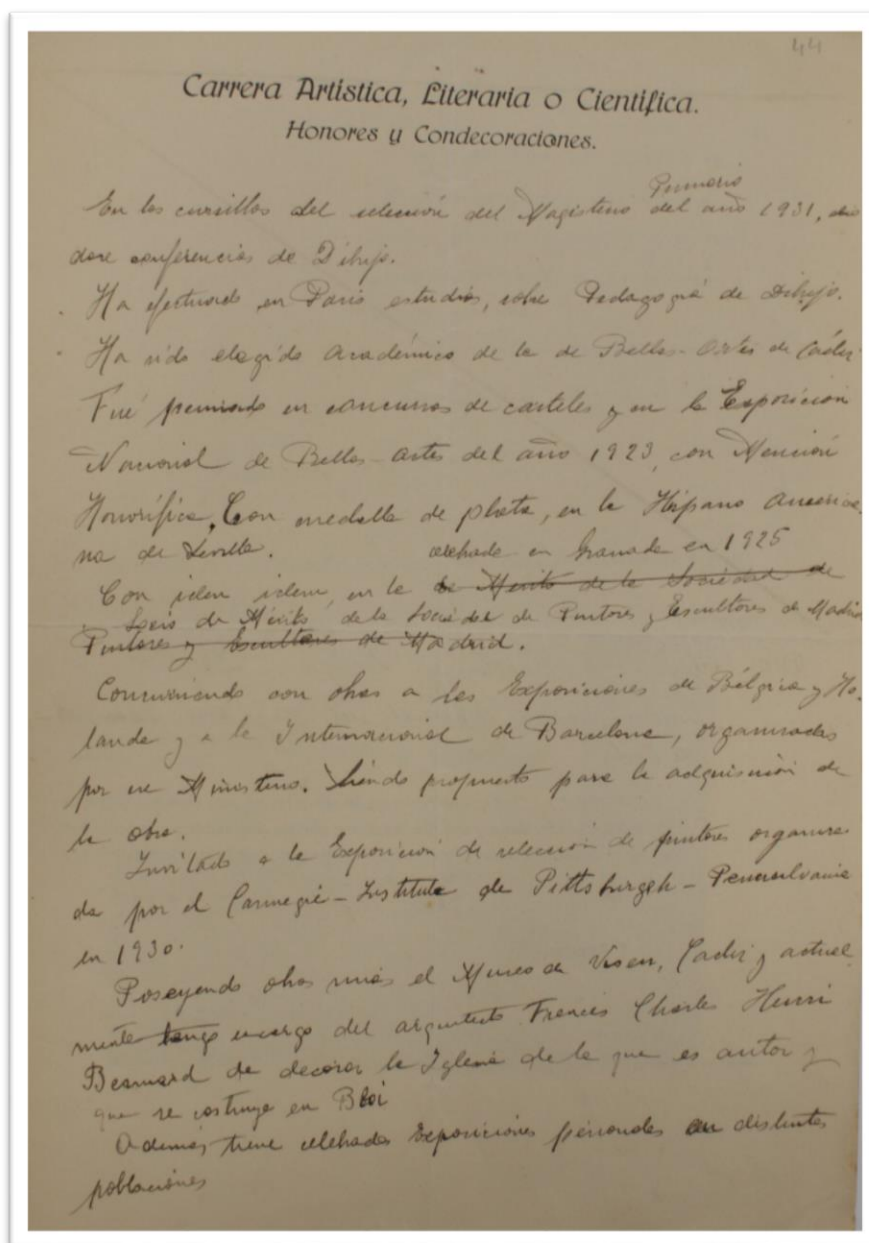 44
Carrera Artística, Literaria o Científica.
Honores y Condecoraciones.
Primario
En los cursillos del selección del Magisterio del año 1931, dio
doce conferencias de Dibujo.
Ha efectuado en Paris estudios, sobre Pedagogía de Dibujo.
Ha sido elegido Académico de la de Bellas-Artes de Cádiz
Fué premiado en concursos de carteles y en la Exposición
Nacional de Bellas-Artes del año 1923, con Mención
Honorífica, Con medalla de plata, en la Hispano America-
na de Sevilla. celebrada en Granada en 1925
Con idem idem, en la de Mérito de la Sociedad de
Socio de Mérito de la Sociedad de Pintores y Escultores de Madrid
Pintores y Escultores de Madrid.
Concurriendo con obras a las Exposiciones de Bélgica y Ho-
landa y a la Internacional de Barcelona, organizadas
por ese Ministerio. Siendo propuesto para la adquisición de
la obra.
Invitado a la Exposición de selección de pintores organiza-
da por el Carnegie-Institute de Pittsburgh-Pennsylvania
en 1930.
Poseyendo obras mias el Museo de Cadiz y actual
mente tengo encargo del arquitecto Frances Charles Henri
Besnard de decorar la Iglesia de la que es autor y
que se costruye en Bloi
Además tiene celebradas exposiciones personales en distintas
poblaciones